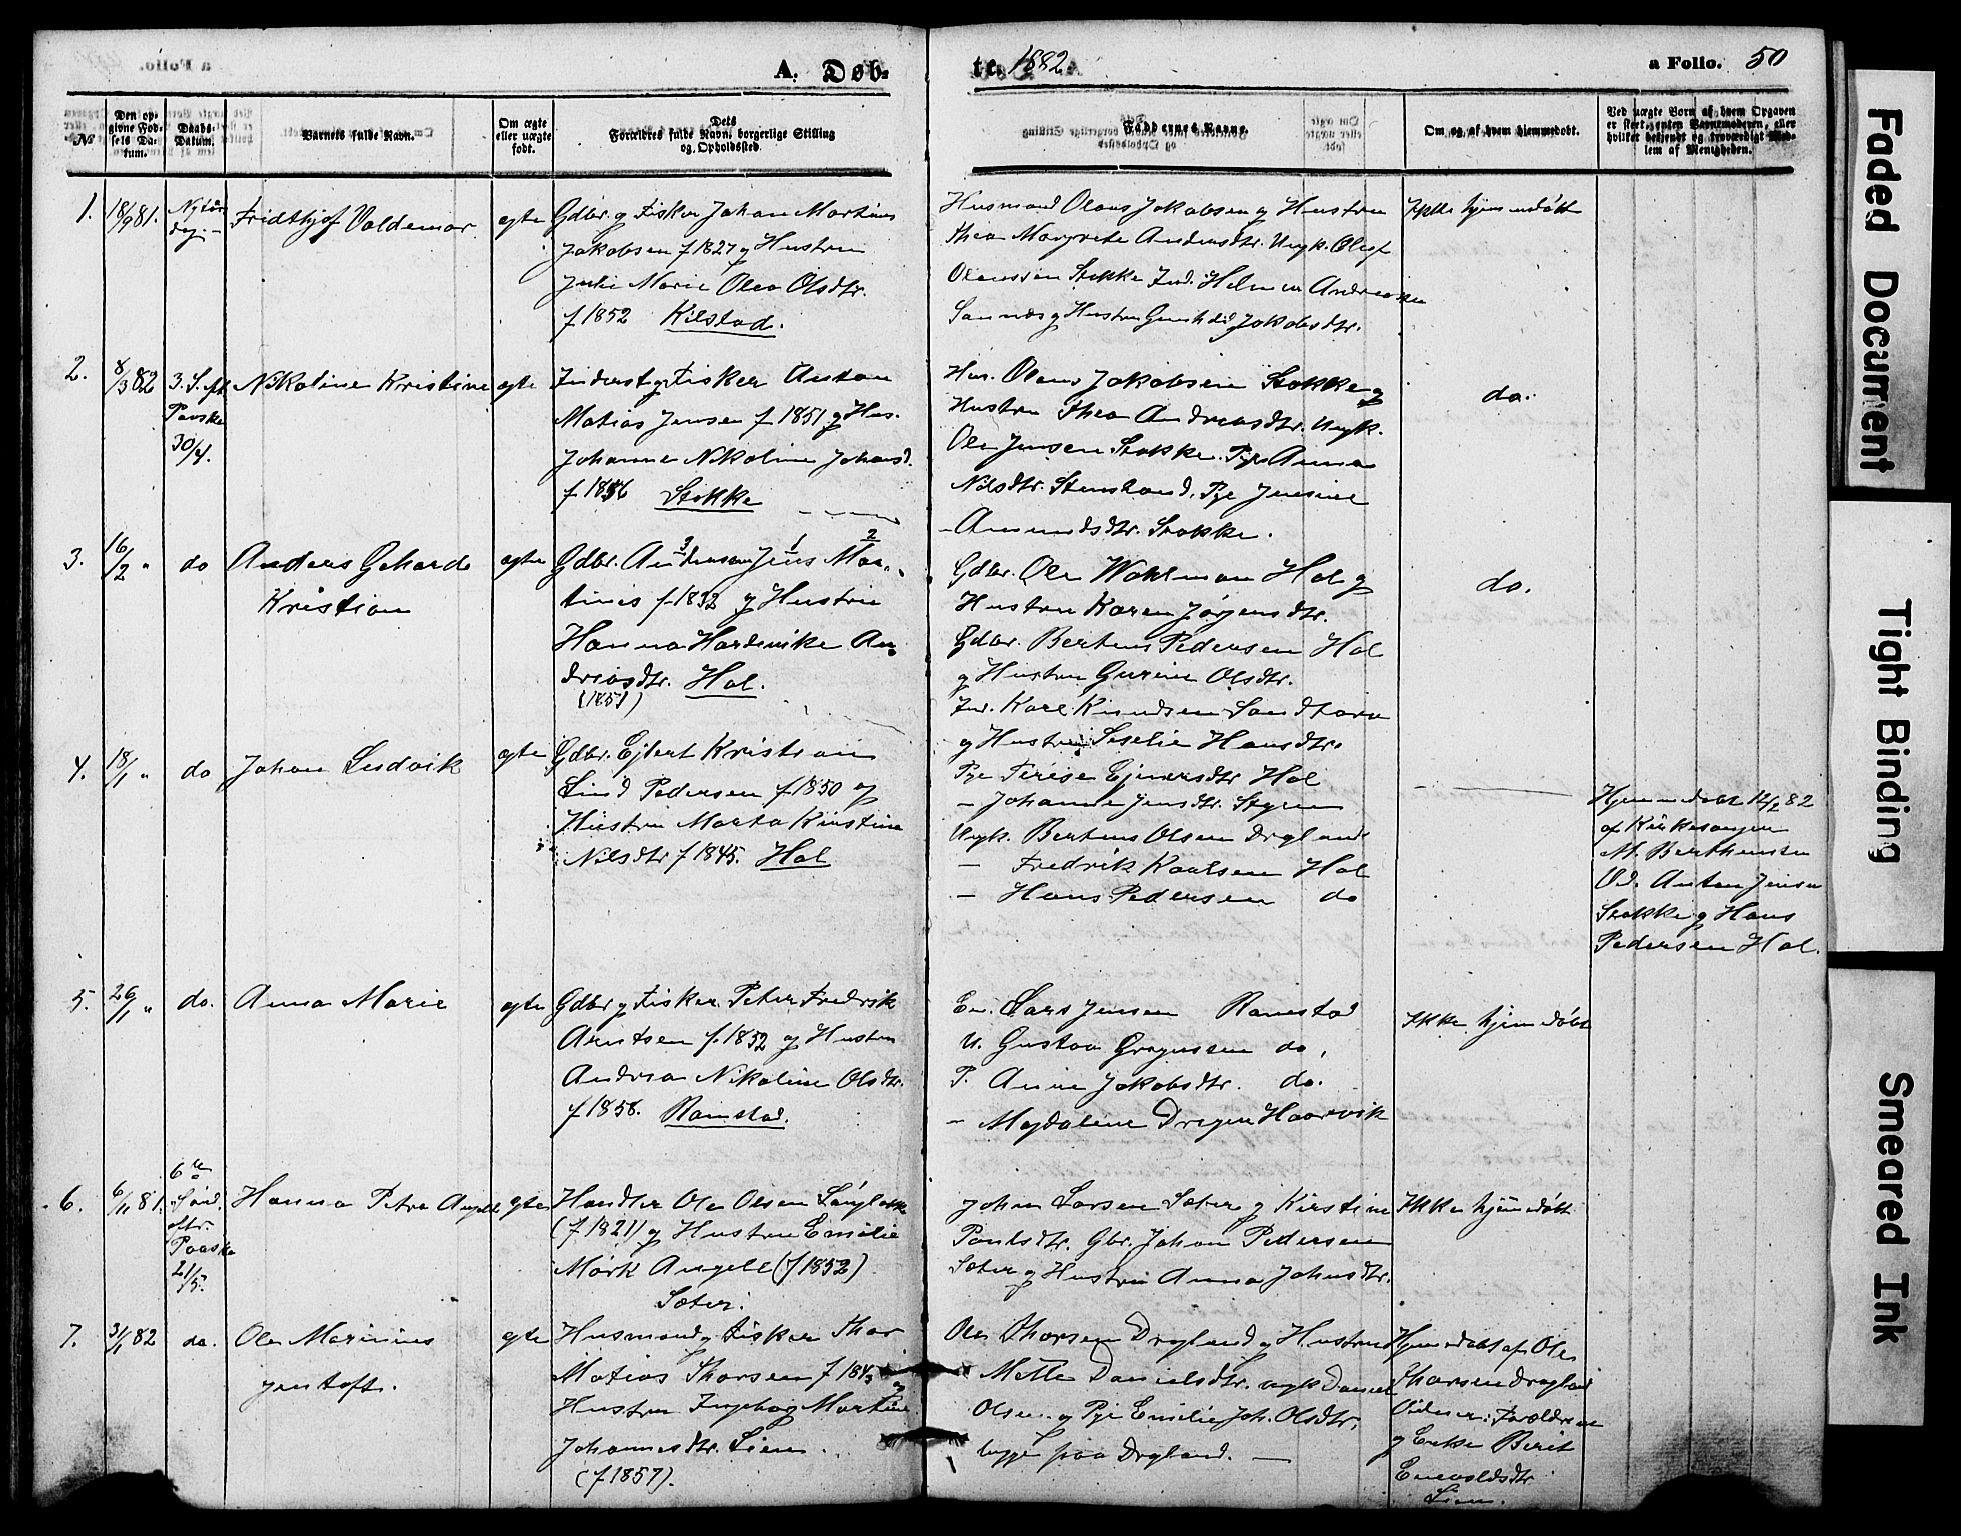 A. Døb-
te. 1882.
a Folio. 50
№
Den op-
givne Fød-
sels Da-
tum.
Daabs-
Datum.
Barnets fulde Navn.
Om ægte
eller uægte
født.
Dets
Forældres fulde Navn, borgerlige Stilling
og Opholdssted.
Faddernes Navne.
Om og af hvem hjemmedøbt.
Ved uægte Børn af hvem Opgaven
er skeet, enten Barnemoderen, eller
hvilket bekjendt og troværdigt Med-
lem af Menigheden.
1. 18/9 81. Nytårs
dag
Fridthjof Valdemar
egte
Gdbr. og Fisker Johan Martines
Jakobsen f 1827 og Hustru
Julie Marie Olea Olsdtr.
f 1852 Kilstad.
Husmand Olaus Jakobsen og Hustru
Thea Margrete Andersdtr. Ungk.
Olaussen Stokke Ind. Andreassen
Sannes og Hustru Gunhild Jakobsdtr.
Ikke hjemmedøbt
2. 8/3 82 3. S. eft.
Paaske
30/4.
Nikoline Kristine
egte
Inderst og Fisker Anton
Matias Jensen f 1851 og Hus.
Johanna Nikoline Johansd.
f 1856 Stokke
Hus. Olaus Jakobsen Stokke og
Hustru Thea Andreasdtr. Ungk.
Ole Jensen Stokke. Pige Anna
Nilsdtr. Stensland, Pge Jensine
Amundsdtr. Stokke.
do.
3. 16/2 " do
Anders Gehard
Kristian
egte
3 1 2
Gdbr. Andersen Jens Mar-
tines f 1832 og Hustru
Hanna Hardevike An-
dreasdtr. Hol.
(1851)
Gdbr. Ole Wahlman Hol og
Hustru Karen Jørgensdtr.
Gdbr. Bertens Pedersen Hol
og Hustru Gurine Olsdtr.
Ind. Karl Knudsen Sandtorv
og Hustru Seselie Hansdtr.
do.
4. 18/1 " do
Johan Ludvik
egte
Gdbr. Ejlert Kristian
Lind Pedersen f 1850 og
Hustru Marta Kirstine
Nilsdtr f 1845. Hol
Pge Terese Ejnersdtr Hol
- Johanna Jensdtr. Styren
Ungk. Bertens Olsen Drgland
- Fredrik Karlsen Hol
- Hans Pedersen do
Hjemmedøbt 12/2 82
af Kirkesanger
M. Berthensen
Vid. Anton Jensen
Stokke og Hans
Pedersen Hol.
5. 26/1 " do.
Anna Marie
egte
Gdbr og Fisker Peter Fredrik
Arntsen f. 1852 og Hustru
Andrea Nikoline Olsdtr.
f 1858. Ramstad.
En. Lars Jensen Ramstad
U. Gustav Gregussen do.
P. Anne Jakobsdtr. do.
- Magdalene Dreyer Haarvik
Ikke hjemmedøbt
6. 6/11 81. 6te
Sønd.
eftr.
Paaske
21/5.
Hanna Petra Angell
egte
Handler Ole Olsen
(f 1821) og Hustru Emilie
Mørk Angell (f 1852)
Sæter.
Johan Larsen Sæter og Kirstine
Paulsdtr. Gbr. Johan Pedersen
Sæter og Hustru Anna Johnsdtr.
Ikke hjemmedøbt
7. 31/1 82 do.
Ole Marinius
Jentoft.
egte
Husmand og Fisker Thor
Matias Thorsen f og
Hustru Ingeborg Martine
Johannesdtr. Lien.
(f 1857).
Ole Thorsen Drgland og Hustru
Mette Danielsdtr. ungk Daniel
Olsen og Pge Emilie Joh. Olsdtr.
begge paa Drgland.
Hjemmedøbt af Ole
Thorsen Drgland
Vidner: Forældrene
og Enke Berit
Enevoldsdtr.
Lien.
Faded Document
Tight Binding
Smeared Ink